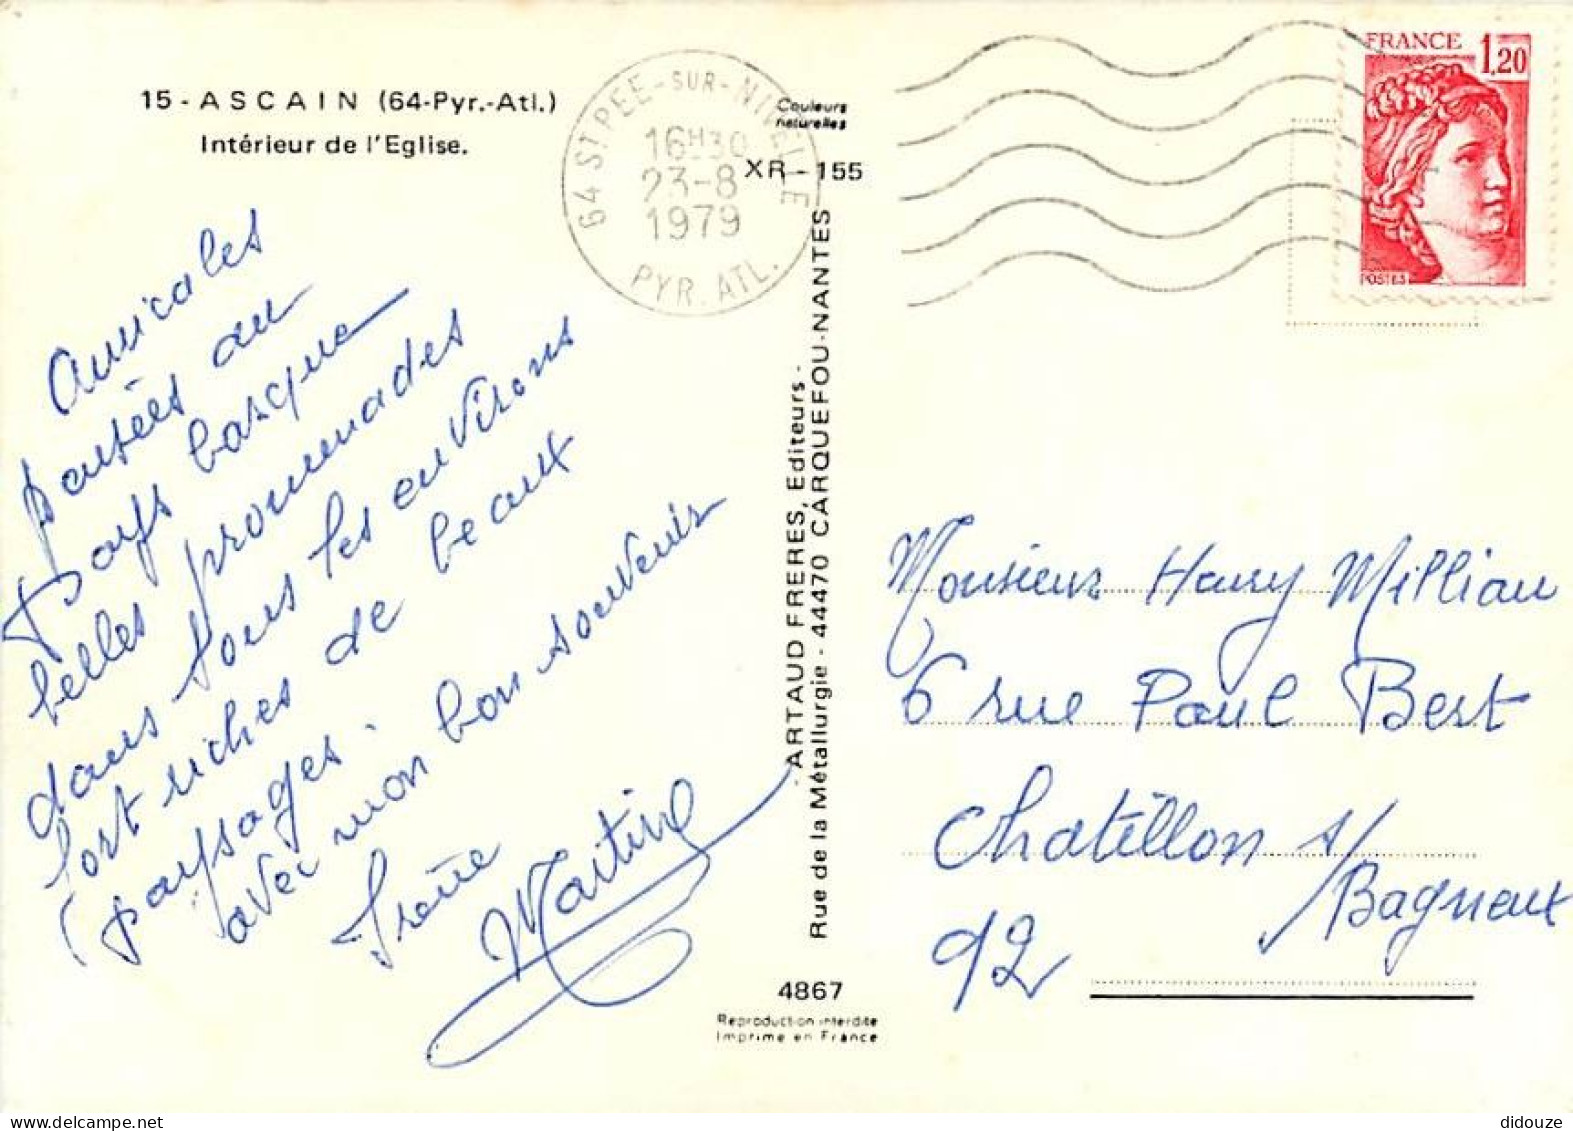 15 - ASCAIN (64-Pyr.-Atl.)
Intérieur de l'Eglise.
64 ST PEE-SUR-NIVELLE
16H30
23-8
1979
PYR. ATL.
Couleurs
naturelles
XR - 155
FRANCE 1,20
POSTES
Amicales
pensées du
Pays basque
belles promenades
dans tous les environs
fort riches de beaux
paysages.
avec mon bon souvenir
Irène
Martine
- ARTAUD FRERES, Editeurs -
Rue de la Métallurgie - 44470 CARQUEFOU-NANTES
4867
Reproduction interdite
Imprimé en France
Monsieur Harry Millian
6 rue Paul Bert
Chatillon s/
Bagneux
92
didouze